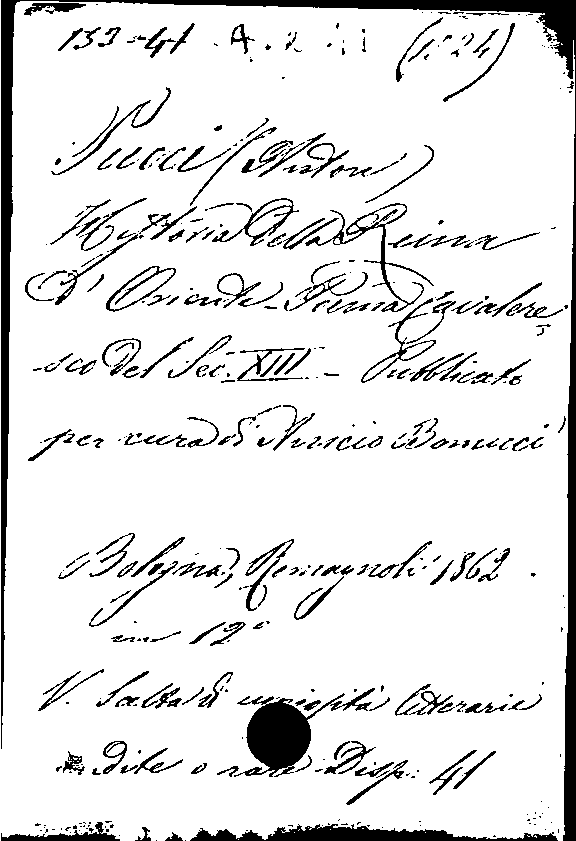 133-41 A.2.41 (1524)
Pucci (Anton)
Hystoria della Reina
d' Oriente - Poema Cavalere
sco del Sec. XIII - Pubblicato
per cura di Anicio Bonucci
Bologna, Romagnoli 1862.
in 12°
V. Scelta di curiosità letterarie
inedite o rare Disp. 41